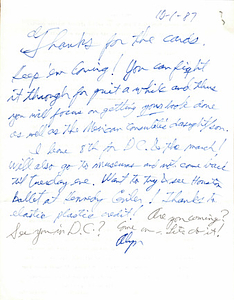 10-1-87
Thanks for the cards.
Keep 'em coming! You can fight
it through for quite a while and then
you will focus on getting your book done
as well as the Mexican
I leave 8th for D.C. for the march!
Will also go to museums and will come back
'til Tuesday eve. Want to try to see Houston
Ballet at Kennedy Center! Thanks to
elastic plastic credit! Are you coming?
See you in D.C.? Come on - let's do it!